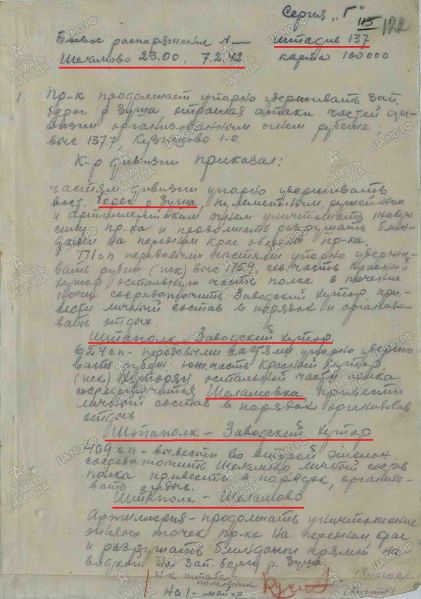 Серия „Г"
115 122
Боевое распоряжение №— штадив 137
Шеламово 23.00, 7.2.42 карта 100000
1 Пр-к продолжает упорно удерживать зап.
берег р. Зуша отражая атаки частей ди-
визии организованным огнем рубежа
выс 137.7, Кузнецово 1-е.
К-р дивизии приказал:
частям дивизии упорно удерживать
вост. берег р. Зуша, пулеметным ружейным
и артиллерийским огнем уничтожать живую
силу пр-ка и продолжать разрушать блин-
дажи на переднем крае обороны пр-ка.
771 сп передовыми частями упорно удержи-
вать рубеж (иск) выс 175.9, сев. часть Красный
Хутор остальную часть полка в течение
ночи сосредоточить Заводский Хутор, при-
вести личный состав в порядок и организо-
вать отдых
Штаполк - Заводский Хутор
624 сп - передовыми частями упорно удержи-
вать рубеж юж. часть Красный Хутор
(иск) остальной части полка
сосредоточиться Шеламовка, привести
личный состав в порядок организовав
отдых
Штаполк - Заводский Хутор
409 сп - вывести во второй эшелон
сосредоточить Шеламово личный состав
полка привести в порядок, организо-
вать отдых.
Штаполк - Шеламово
Артиллерия - продолжать уничтожение
огневых точек пр-ка на переднем крае
и разрушать блиндажи прямой на-
водкой на зап. берегу р. Зуша.
Н-к штаба
майор